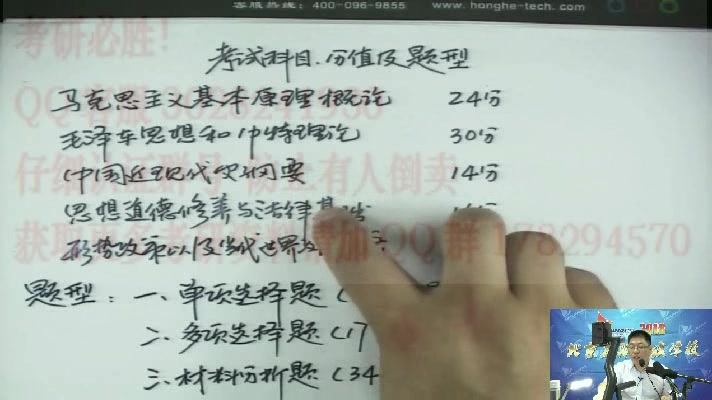 客服热线：400-096-9855 www.honghe-tech.com
考研必胜！
考试科目、分值及题型
马克思主义基本原理概论 24分
QQ客服
毛泽东思想和中特理论 30分
中国近现代史纲要 14分
仔细认证群号 防止有人倒卖
思想道德修养与法律基础
形势政策以及当代世界
获取更多考研资料加QQ群 178294570
题型：一、单项选择题（
二、多项选择题（17
三、材料分析题（34
2018